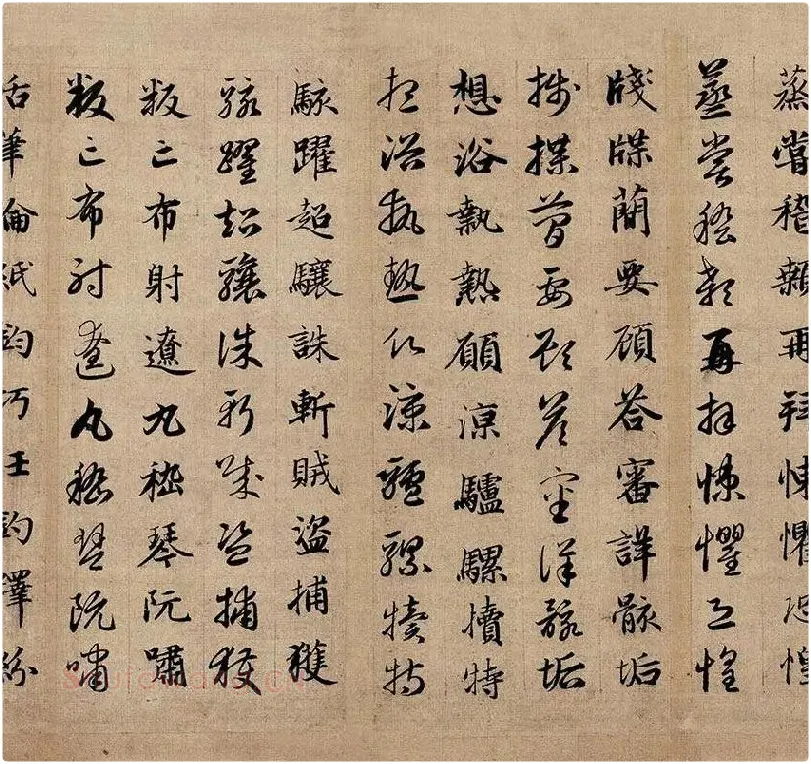 蒸嘗稽顙再拜悚懼恐惶
蒸嘗稽顙再拜悚懼恐惶
牋牒簡要顧荅審詳骸垢
牋牒簡要顧荅審詳骸垢
想浴執熱願涼驢騾犢特
想浴執熱願涼驢騾犢特
駭躍超驤誅斬賊盜捕獲
駭躍超驤誅斬賊盜捕獲
叛亡布射遼丸嵇琴阮嘯
叛亡布射遼丸嵇琴阮嘯
恬筆倫紙鈞巧任釣釋紛